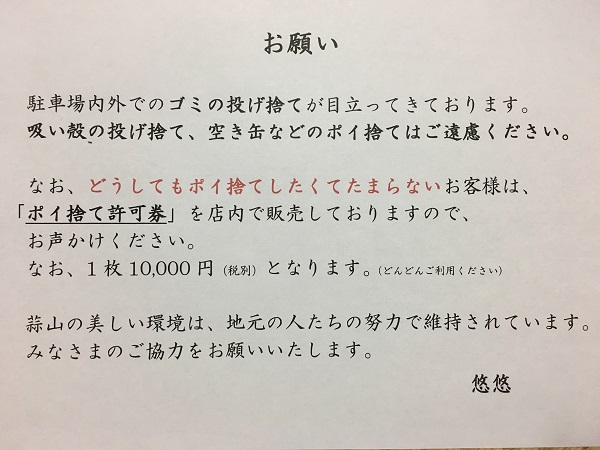 お願い
駐車場内外でのゴミの投げ捨てが目立ってきております。
吸い殻の投げ捨て、空き缶などのポイ捨てはご遠慮ください。
なお、どうしてもポイ捨てしたくてたまらないお客様は、
「ポイ捨て許可券」を店内で販売しておりますので、
お声かけください。
なお、1枚10,000円（税別）となります。（どんどんご利用ください）
蒜山の美しい環境は、地元の人たちの努力で維持されています。
みなさまのご協力をお願いいたします。
悠悠